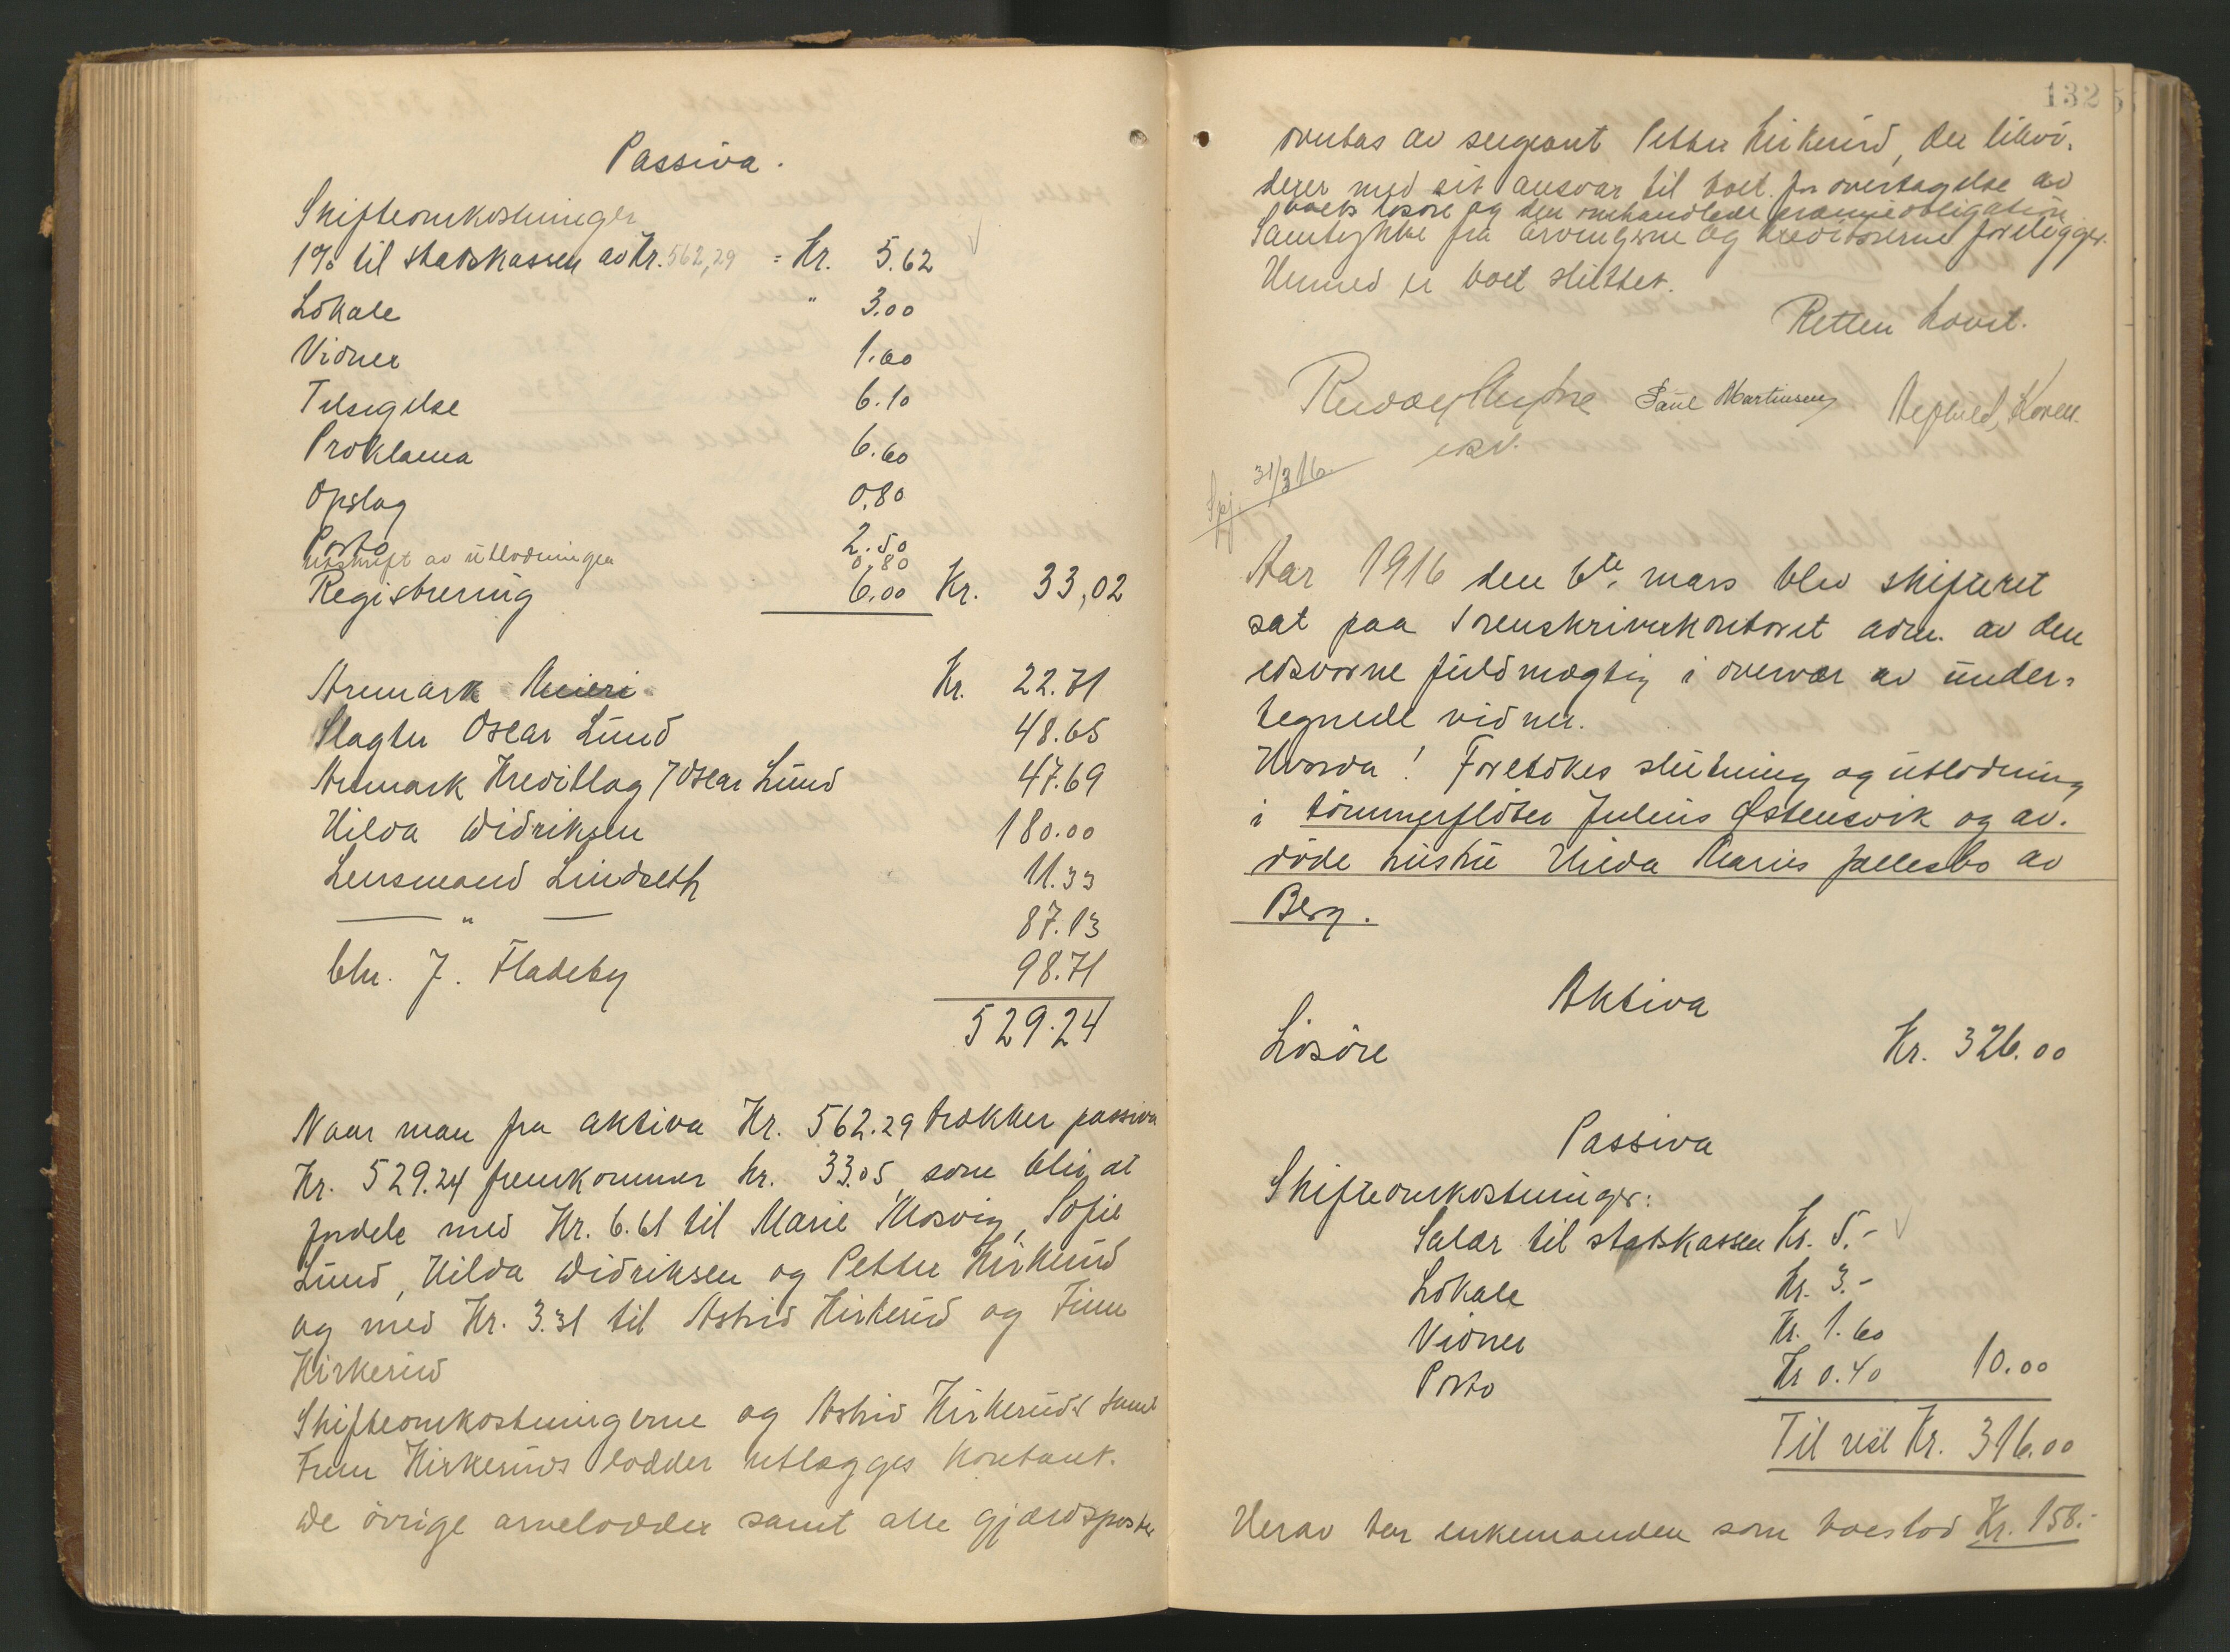 Passiva.
Skifteomkostninger
1% til statskassen av Kr. 562,29 = Kr. 5.62
Lokale " 3.00
Vidner 1.60
Tilsigelse 6.10
Proklama 6.60
Opslag 0.80
Porto 2.50
Utskrift av utlodningen 0.80
Registrering 6.00 Kr. 33,02
Aremark Meieri Kr. 22.71
Slagter Oscar Lund 48.65
Aremark Kreditlag / Oscar Lund 47.69
Hilda Didriksen 180.00
Lensmand Lindseth 11.33
— " — 87.13
Chr. J. Fladeby 98.71
529.24
Naar man fra aktiva Kr. 562.29 trækker passiva
Kr. 529.24 fremkommer kr. 33.05, som blir at
fordele med Kr. 6.61 til Marie Mosvig, Sofie
Lund, Hilda Didriksen og Petter Kirkerud
og med Kr. 3.31 til Astrid Kirkerud og Finn
Kirkerud
Skifteomkostningerne og Astrid Kirkeruds samt
Finn Kirkeruds lodder utlægges kontant.
De övrige arvelodder samt alle gjældsposter
132
overtas av sergeant Petter Kirkerud, der likvi-
derer med sit ansvar til boet for overtagelse av
boets lösöre og den omhandlede præmieobligation
Samtykke fra arvingerne og kreditorerne foreligger.
Hermed er boet sluttet.
Retten hævet.
Paul Martinsen
esv.
31/3 16
Aar 1916 den 6te mars blev skifteret
sat paa Sorenskriverkontoret adm. av den
edsvorne fuldmægtig i overvær av under-
tegnede vidner.
Hvorda! Foretökes slutning og utlodning
i tömmerflöter Julius Østensvik og av-
döde hustru Hilda Maries fællesbo av
Berg.
Aktiva
Lösöre Kr. 326.00
Passiva
Skifteomkostninger:
Salær til statskassen Kr. 5.-
Lokale Kr. 3.-
Vidner Kr. 1.60
Porto Kr 0.40 10.00
Til rest Kr. 316.00
Herav tar enkemanden som boeslod Kr. 158.-